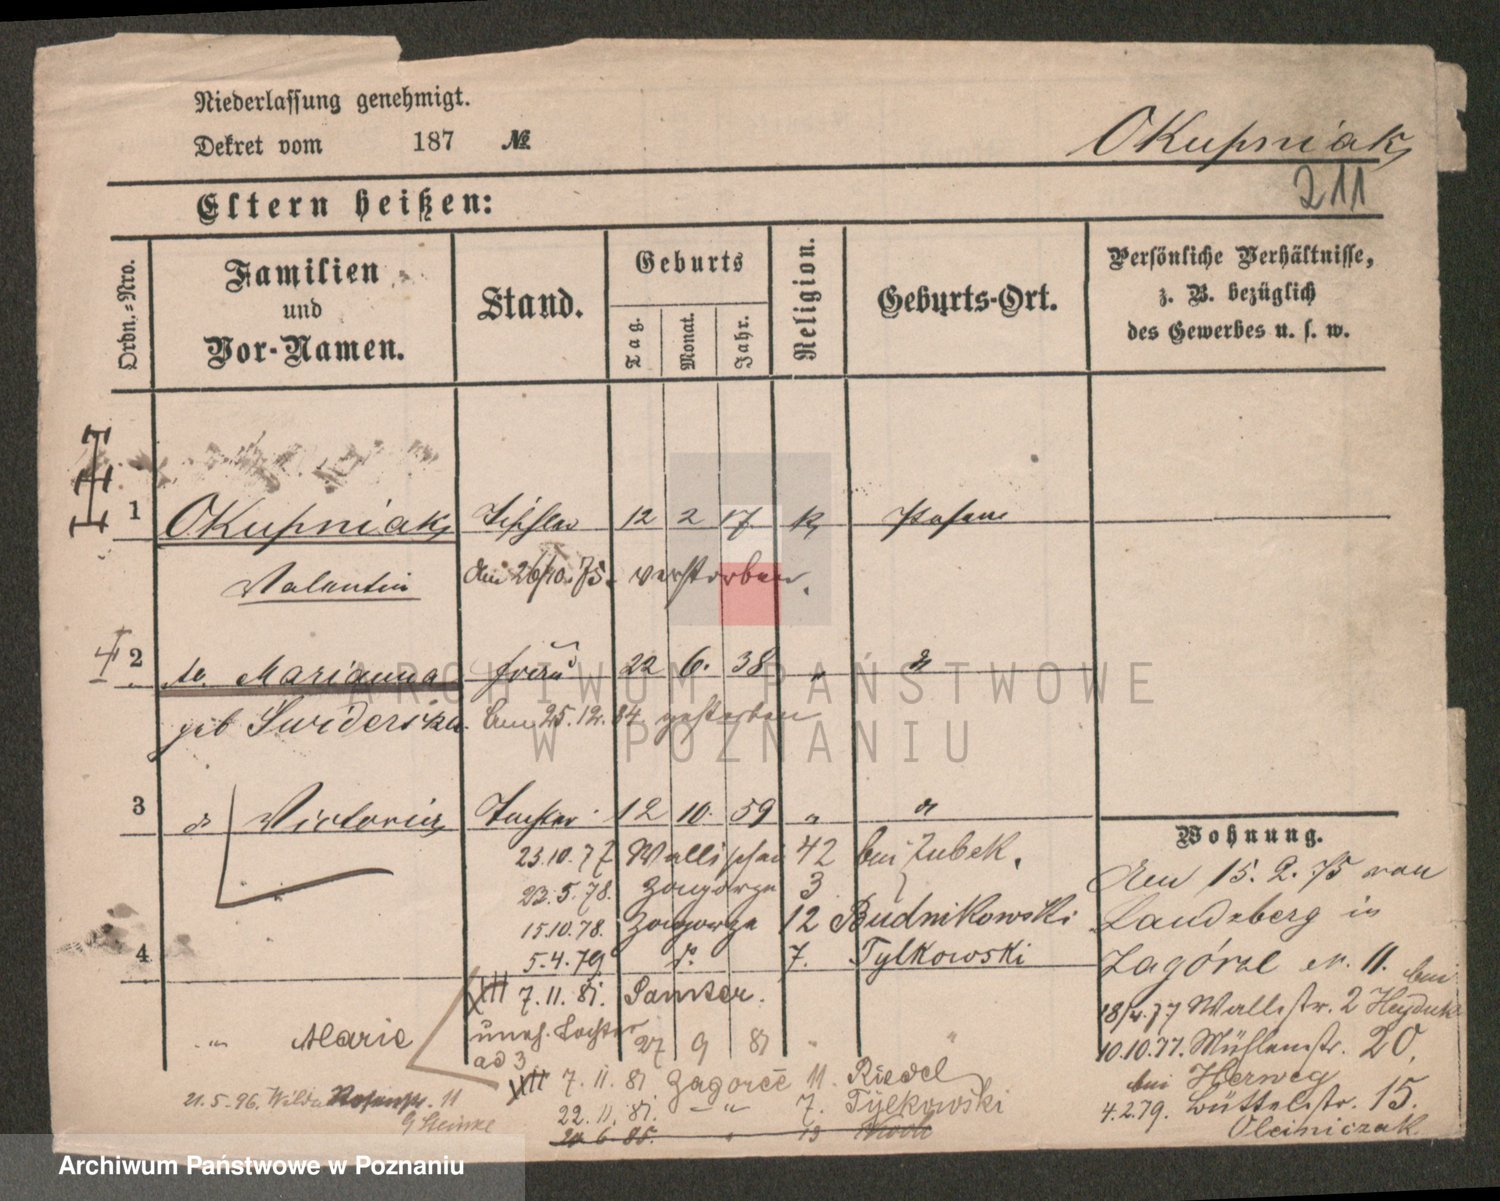 Niederlassung genehmigt.
Dekret vom 187 №
Okupniak
211
Eltern heißen:
Ordn.-Nro.
Familien
und
Vor-Namen.
Stand.
Geburts
Tag.
Monat.
Jahr.
Religion.
Geburts-Ort.
Persönliche Verhältnisse,
z. B. bezüglich
des Gewerbes u. s. w.
1 Okupniak Tischler 12 2 17 k Posen
Valentin den 26/10. 75. verstorben.
2 Marianna Frau 22 6. 38 "
geb Swiderska 25.12.84 gestorben
3 Victoria Tochter 12 10. 59 " "
23.10.77 Wallischei 42 bei Zubek.
23.5.78. Zagorze 3
15.10.78. Zagorze 12 Budnikowski
4
5.4.79 do 7. Tylkowski
XII 7.11.81. Samter.
" Marie uneh. Tochter 27 9 81 " "
ad 3
XII 7.11.81 Zagorze 11. Riedel
22.11.81. — " 7. Tylkowski
20 6 85. " 13
21.5.96. Wilda 11
Wohnung.
Den 15. 2. 75 von
Landsberg in
Zagórze Nr. 11. bei
18/4.77 Wallstr. 2
10.10.77. Mühlenstr. 20.
bei Herweg
4.2.79. Büttelstr. 15.
Olejniczak
ARCHIWUM PAŃSTWOWE
W POZNANIU
Archiwum Państwowe w Poznaniu